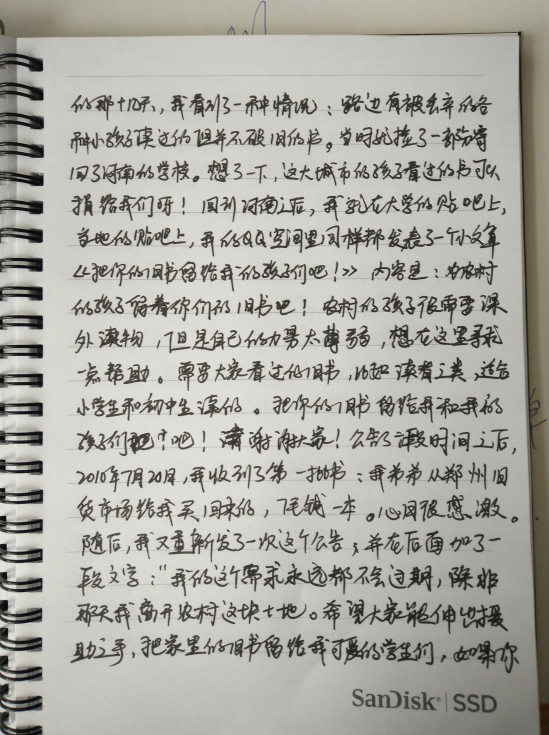 的那十几天，我看到了一种情况：路边有被丢弃的各
种小孩子读过的但并不破旧的书。当时就捡了一部分寄
回了河南的学校。想了一下，这大城市的孩子看过的书可以
捐给我们呀！回到河南之后，我就在大学的贴吧上，
当地的贴吧上，我的QQ空间里同样都发表了一个小文章
《把你的旧书留给我的孩子们吧！》内容是：为农村
的孩子留着你们的旧书吧！农村的孩子很需要课
外读物，但是自己的力量太薄弱，想在这里寻求
一点帮助。需要大家看过的旧书，比如读者之类，适合
小学生和初中生读的。把你的旧书留给我和我的
孩子们吧！谢谢大家！公告了一段时间之后，
2010年7月20日，我收到了第一批书：我弟弟从郑州旧
货市场给我买回来的，7毛钱一本。心里很感激。
随后，我又重新发了一次这个公告，并在后面加了一
段文字：“我的这个需求永远都不会过期，除非
那天我离开农村这块土地。希望大家能伸出援
助之手，把家里的旧书留给我可爱的学生们，如果你
SanDisk SSD